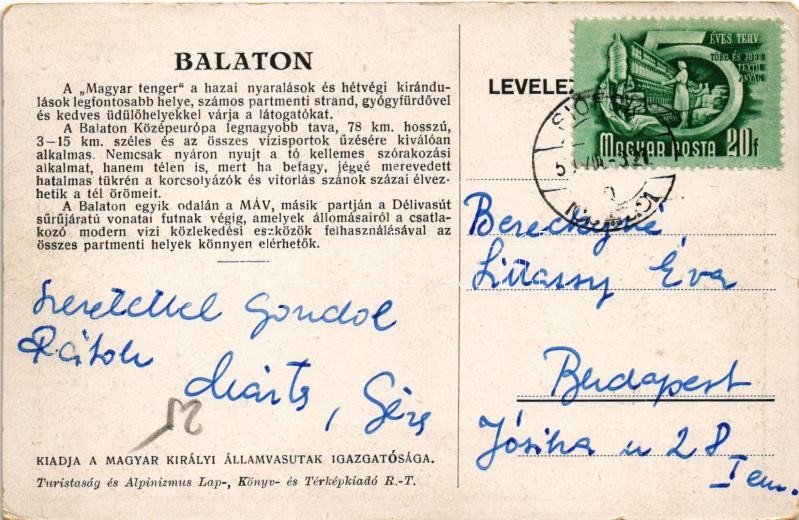 BALATON
A „Magyar tenger" a hazai nyaralások és hétvégi kirándu-
lások legfontosabb helye, számos partmenti strand, gyógyfürdővel
és kedves üdülőhelyekkel várja a látogatókat.
A Balaton Középeurópa legnagyobb tava, 78 km. hosszú,
3—15 km. széles és az összes vizisportok űzésére kiválóan
alkalmas. Nemcsak nyáron nyujt a tó kellemes szórakozási
alkalmat, hanem télen is, mert ha befagy, jéggé merevedett
hatalmas tükrén a korcsolyázók és vitorlás szánok százai élvez-
hetik a tél örömeit.
A Balaton egyik odalán a MÁV, másik partján a Délivasút
sűrűjáratú vonatai futnak végig, amelyek állomásairól a csatla-
kozó modern vizi közlekedési eszközök felhasználásával az
összes partmenti helyek könnyen elérhetők.
Szeretettel gondol
Rátok
Márta, Géza
52
KIADJA A MAGYAR KIRÁLYI ÁLLAMVASUTAK IGAZGATÓSÁGA.
Turistaság és Alpinizmus Lap-, Könyv- és Térképkiadó R.-T.
LEVELEZ
5 ÉVES TERV
TÖBB ÉS JOBB
TEXTIL
ANYAG
MAGYAR POSTA 20f
Bereckyné
Litassy Éva
Budapest
Jósika u 28
I em.